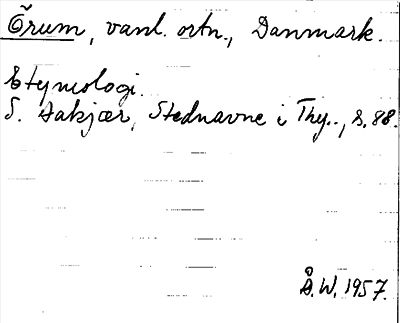 Õrum, vanl. ortn., Danmark.
Etymologi.
S. Aakjær, Stednavne i Thy.., s. 88.
Å.W. 1957.